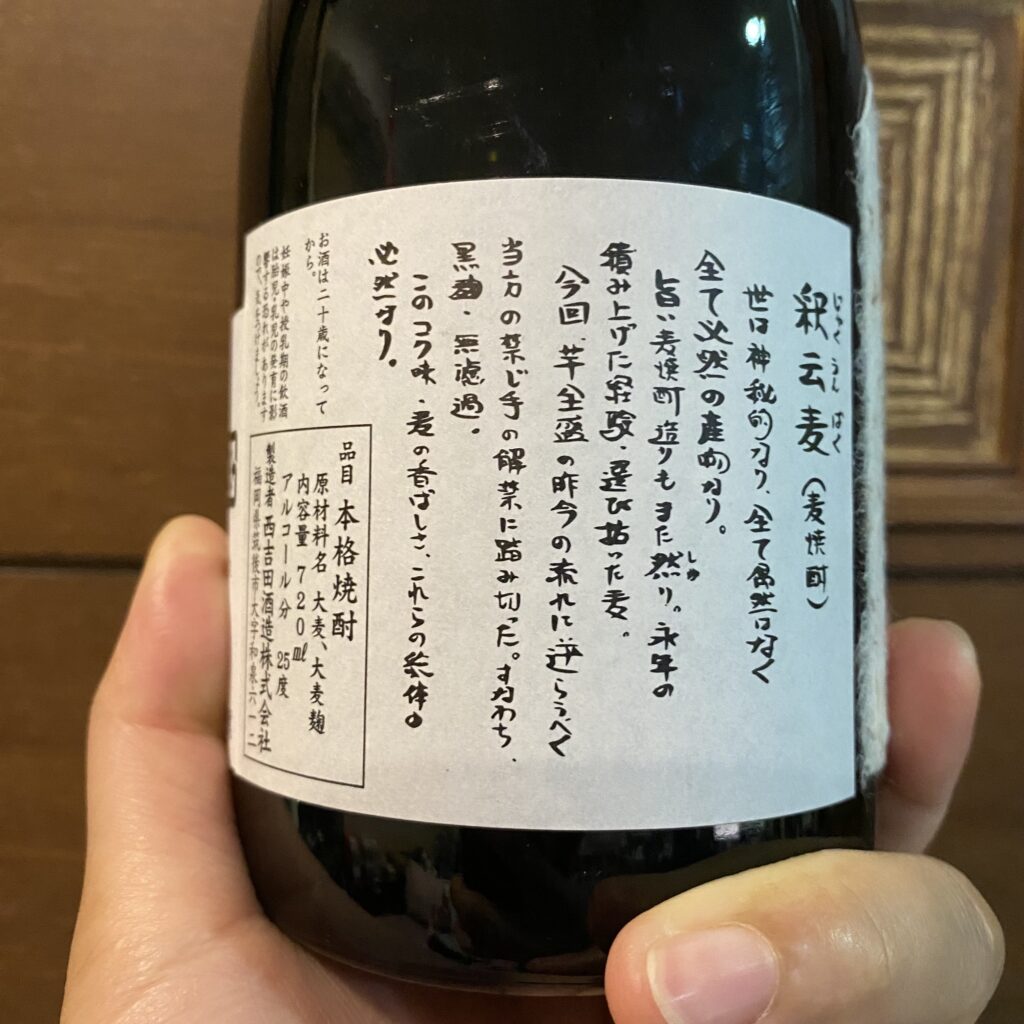 釈云麦（麦焼酎）
しゃく うん ばく
世は神秘的なり、全て偶然はなく
全て必然の産物なり。
旨い麦焼酎造りもまた然り。永年の
しか
積み上げた経験・選び抜いた麦。
今回、芋全盛の昨今の流れに逆らうべく
当方の禁じ手の解禁に踏み切った。すなわち、
黒麹・無濾過。
このコク味・麦の香ばしさ、これらの総体は
必然なり。
お酒は二十歳になって
から。
妊娠中や授乳期の飲酒
は胎児・乳児の発育に影
響する恐れがあります
ので、気をつけましょう。
品目 本格焼酎
原材料名 大麦、大麦麹
内容量 720㎖
アルコール分 25度
製造者 西吉田酒造株式会社
福岡県筑後市大字和泉六一二